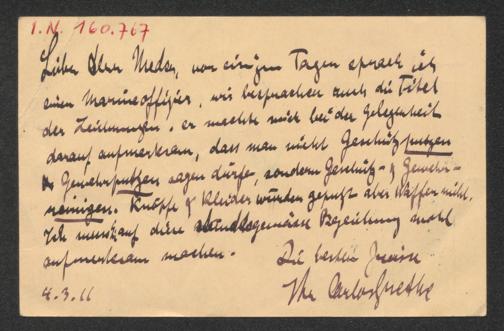 I.N. 160.767
Lieber Herr Meder, vor einigen Tagen sprach ich
einen Marineoffizier, wir besprachen auch die Titel
der Zeichnungen, er machte mich bei der Gelegenheit
darauf aufmerksam, dass man nicht Geschützputzen
Gewehrputzen sagen dürfe, sondern Geschütz- & Gewehr-
reinigen. Knöpfe & Kleider würden geputzt aber Waffen nicht.
Ich muss auf diese standesgemässe Bezeichnung wohl
aufmerksam machen.
Die besten Grüsse
4.3.11
Ihr Carlos Grethe